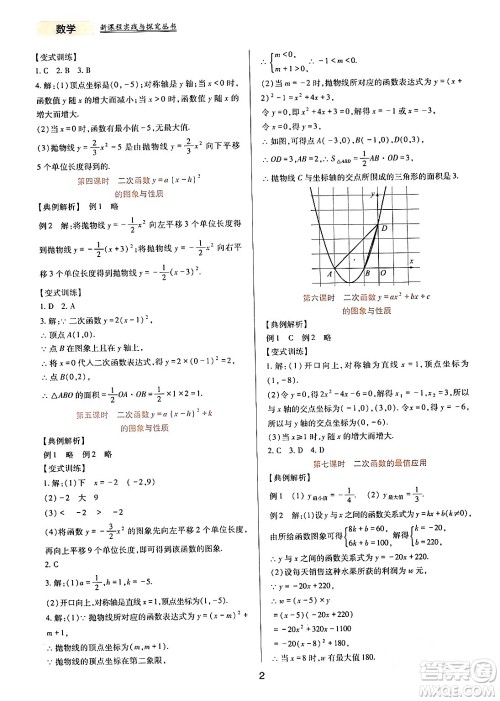 数学
新课程实践与探究丛书
【变式训练】
1. C 2. B 3. A
4. 解:(1)顶点坐标是(0,2);对称轴是y轴;
函数值y随x的增大而减小;当x>0时,函数值y
随x的增大而增大.
(2)当x=0时,函数有最大值.
(3)抛物线y=-2/3x²-5可由抛物线y=-2/3x²向下平移
5个单位长度得到的.
第四课时 二次函数y=a(x-h)²
的图象与性质
【典例解析】 例1 略
例2 解:将抛物线y=-1/2x²向左平移3个单位长度得
到抛物线y=-1/2(x+3)²;将抛物线y=-1/2x²向右平
移3个单位长度得到抛物线y=-1/2(x-3)².
【变式训练】
1. D 2. A
3. 解:∵二次函数y=2(x-1)²,
∴顶点A(1,0).
∵点B在函数图象上且在y轴上,
∴将x=0代入二次函数表达式,得y=2.
∴点B(0,2).
∴△ABO的面积=1/2OA·OB=1/2×1×2=1.
第五课时 二次函数y=a(x-h)²+k
的图象与性质
【典例解析】
例1 略 例2 略
【变式训练】
1. 解:(1)下 x=-2 (-2,9)
(2)-2 大 9
(3)< -2 > -2
(4)将函数y=-x²的图象先向左平移2个单位长度,
再向上平移9个单位长度可以得到该函数的图象.
2. C
3. 解:(1)a=1/2,h=1,k=-5.
(2)开口向上,对称轴为x=1,顶点坐标为(1,-5).
4. 解:∵抛物线的表达式为y=(x-m)²+(m+1),
∴抛物线的顶点坐标为(m,m+1).
∵抛物线的顶点在第二象限,
∴{m<0,
m+1>0.
∴-1<m<0.
5. 解:(1)抛物线所对应的函数表达式为y=(x+2)²-1.
令x=0,则y=3.∴OD=3.
令y=0,则x²+4x+3=0.
解得x₁=-1,x₂=-3.
∴A(-3,0),B(-1,0).∴AB=2.
∴OD=3,S△ABD=1/2×2×3=3.
∴抛物线与坐标轴的交点所围成的三角形的面积是3.
y
D
A
B
O
x
第六课时 二次函数y=ax²+bx+c
的图象与性质
【典例解析】
例1 C 例2 略 例3 略
【变式训练】
1. 解:(1)由题意得,对称轴为直线x=1,顶点坐标为
(1,-8).
(2)令y=0,则2x²-4x-6=0,解得x₁=-1,x₂=3,
所以与x轴的交点坐标为(-1,0),(3,0).令x=0,得y=-6,
所以与y轴的交点坐标为(0,-6).
(3)当x≥1时,y随x的增大而增大.
2. C 3. D 4. D
第七课时 二次函数的最值应用
【典例解析】
例1 (1)y最小值=-1/4. (2)y最大值=1/3.
例2 解:(1)设y与x的函数关系式为y=kx+b,
由所给函数图象可得{8k+b=60, 6k+b=100. 解得{k=-20, b=220.
∴y与x的函数关系式为y=-20x+220.
(2)设每天销售这种水果所获的利润为w元.
∵y=-20x+220,
∴w=(x-5)y
=(x-5)(-20x+220)
=-20x²+320x-1100
=-20(x-8)²+180.
∴当x=8时,w有最大值,最大值为180.
2